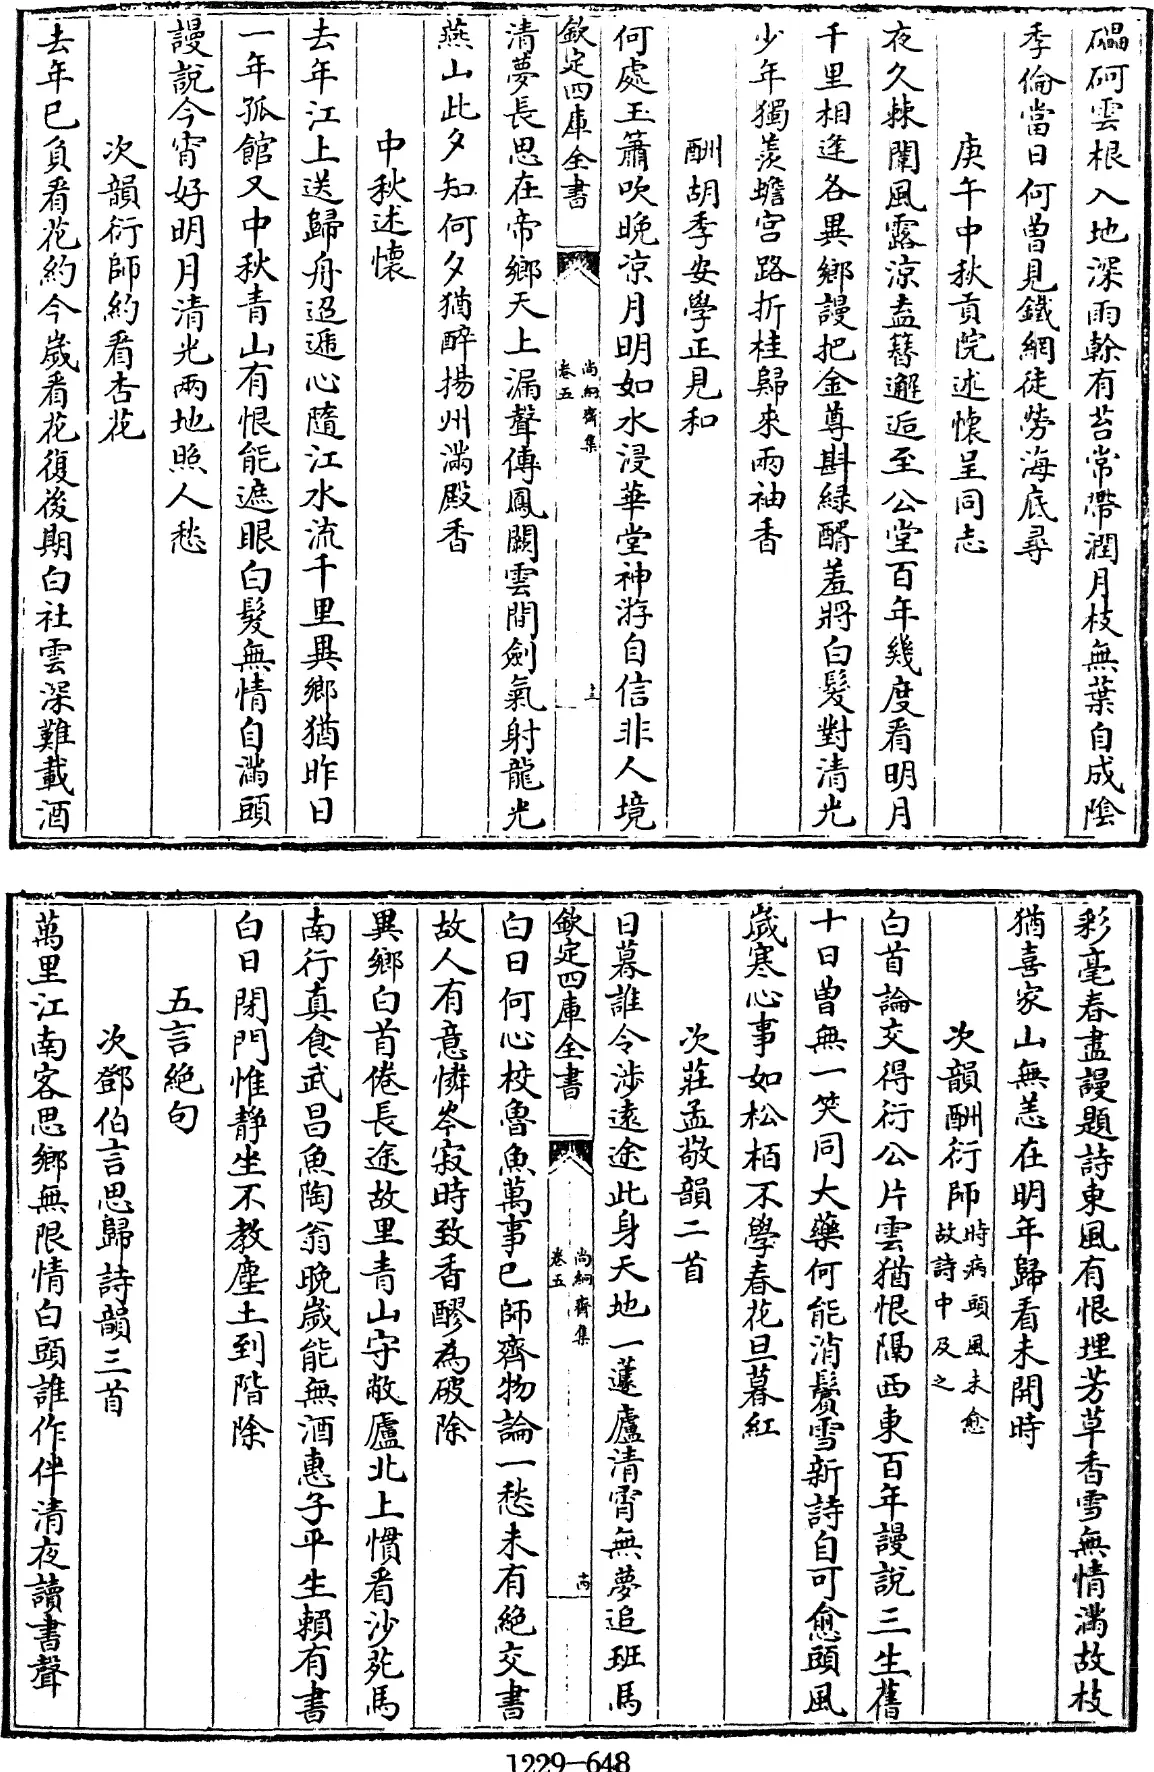 礧砢雲根入地深雨榦有苔常帶潤月枝無葉自成陰
季倫當日何曽見鐵網徒勞海底尋
庚午中秋貢院述懷呈同志
夜久棘闈風露涼盍簪邂逅至公堂百年幾度看明月
千里相逢各異鄉謾把金尊斟緑醑羞將白髮對清光
少年獨羨蟾宫路折桂歸來兩袖香
酬胡季安學正見和
何處玉簫吹晚凉月明如水浸華堂神游自信非人境
欽定四庫全書
尚絅齋集
卷五
十三
清夢長思在帝鄉天上漏聲傳鳳闕雲間劍氣射龍光
燕山此夕知何夕猶醉揚州滿殿香
中秋述懷
去年江上送歸舟迢遞心隨江水流千里異鄉猶昨日
一年孤館又中秋青山有恨能遮眼白髮無情自滿頭
謾説今宵好明月清光兩地照人愁
次韻衍師約看杏花
去年已負看花約今歲看花復後期白社雲深難載酒
彩毫春盡謾題詩東風有恨埋芳草香雪無情滿故枝
猶喜家山無恙在明年歸看未開時
次韻酬衍師時病頭風未愈故詩中及之
白首論交得衍公片雲猶恨隔西東百年謾説三生舊
十日曽無一笑同大藥何能消鬢雪新詩自可愈頭風
歲寒心事如松栢不學春花旦暮紅
次莊孟敬韻二首
日暮誰令渉遠途此身天地一蘧廬清宵無夢追班馬
欽定四庫全書
尚絅齋集
卷五
十四
白日何心校魯魚萬事已師齊物論一愁未有絶交書
故人有意憐岑寂時致香醪為破除
異鄉白首倦長途故里青山守敝廬北上慣看沙苑馬
南行真食武昌魚陶翁晚歲能無酒惠子平生頼有書
白日閉門惟静坐不教塵土到階除
五言絶句
次鄧伯言思歸詩韻三首
萬里江南客思鄉無限情白頭誰作伴清夜讀書聲
1229—648